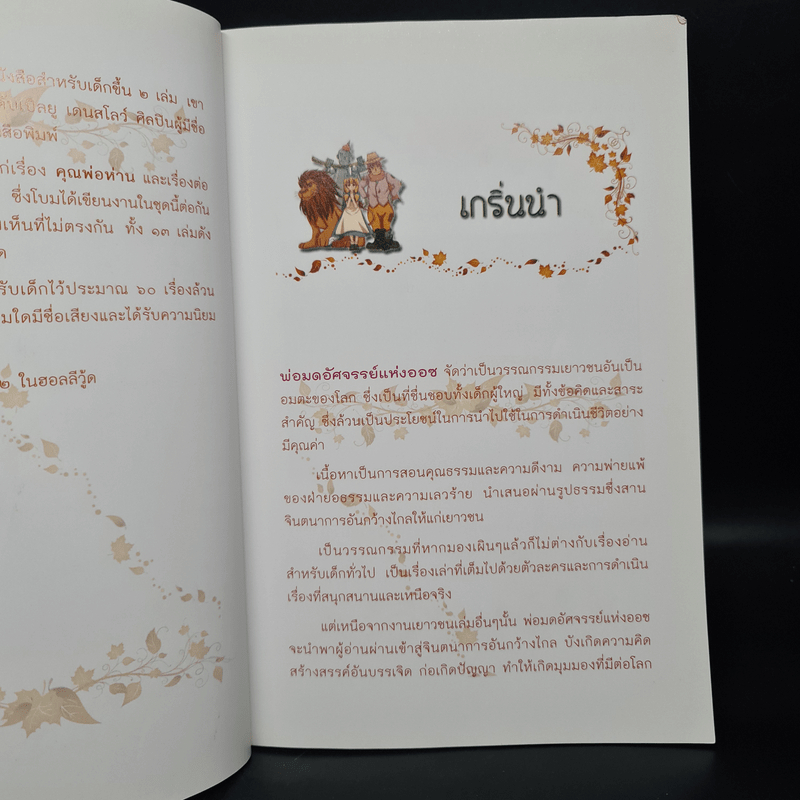 นังสือสำหรับเด็กขึ้น ๒ เล่ม เขา
เดนสโลว์ ศิลปินผู้มีชื่อ
สือพิมพ์
ก่เรื่อง คุณพ่อห่าน และเรื่องต่อ
ซึ่งโบมได้เขียนงานในชุดนี้ต่อกัน
มเห็นที่ไม่ตรงกัน ทั้ง ๑๓ เล่มดัง
ด
รับเด็กไว้ประมาณ ๖๐ เรื่องล้วน
มใดมีชื่อเสียงและได้รับความนิยม
๒ ในฮอลลีวู้ด
เกริ่นนำ
พ่อมดอัศจรรย์แห่งออซ จัดว่าเป็นวรรณกรรมเยาวชนอันเป็น
อมตะของโลก ซึ่งเป็นที่ชื่นชอบทั้งเด็กผู้ใหญ่ มีทั้งข้อคิดและสาระ
สำคัญ ซึ่งล้วนเป็นประโยชน์ในการนำไปใช้ในการดำเนินชีวิตอย่าง
มีคุณค่า
เนื้อหาเป็นการสอนคุณธรรมและความดีงาม ความพ่ายแพ้
ของฝ่ายอธรรมและความเลวร้าย นำเสนอผ่านรูปธรรมซึ่งสาน
จินตนาการอันกว้างไกลให้แก่เยาวชน
เป็นวรรณกรรมที่หากมองเผินๆแล้วก็ไม่ต่างกับเรื่องอ่าน
สำหรับเด็กทั่วไป เป็นเรื่องเล่าที่เต็มไปด้วยตัวละครและการดำเนิน
เรื่องที่สนุกสนานและเหนือจริง
แต่เหนือจากงานเยาวชนเล่มอื่นๆนั้น พ่อมดอัศจรรย์แห่งออซ
จะนำพาผู้อ่านผ่านเข้าสู่จินตนาการอันกว้างไกล บังเกิดความคิด
สร้างสรรค์อันบรรเจิด ก่อเกิดปัญญา ทำให้เกิดมุมมองที่มีต่อโลก